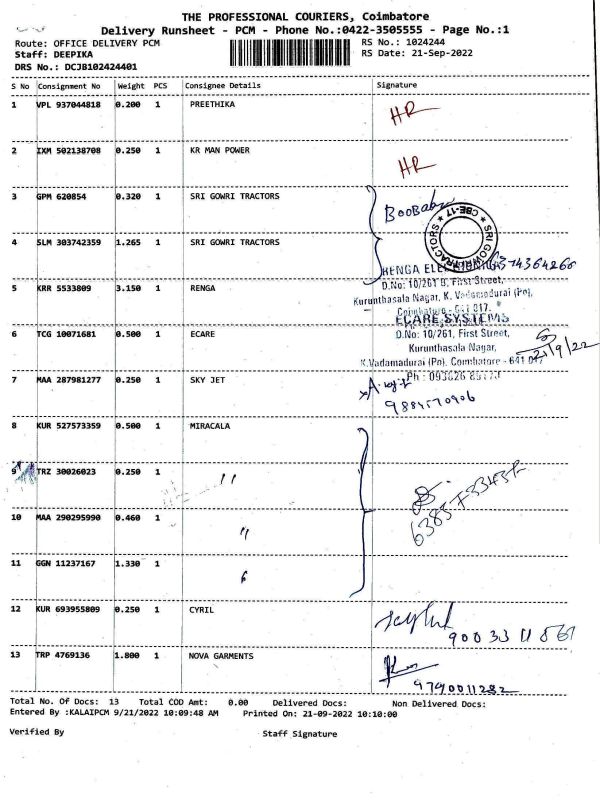 THE PROFESSIONAL COURIERS, Coimbatore
Delivery Runsheet - PCM - Phone No.:0422-3505555 - Page No.:1
Route: OFFICE DELIVERY PCM RS No.: 1024244
Staff: DEEPIKA RS Date: 21-Sep-2022
DRS No.: DCJB102424401
S No Consignment No Weight PCS Consignee Details Signature
1 VPL 937044818 0.200 1 PREETHIKA HR
2 IXM 502138708 0.250 1 KR MAN POWER HR
3 GPM 620854 0.320 1 SRI GOWRI TRACTORS BooBabu
SRI GOWRI TRACTORS ★ CBE-17 ★
4 SLM 303742359 1.265 1 SRI GOWRI TRACTORS
RENGA
D.No: 10/261 B, First Street,
5 KRR 5533809 3.150 1 RENGA Kurunthasala Nagar, K. Vadamadurai (Po),
Coimbatore - 641 017.
ECARE SYSTEMS
6 TCG 10071681 0.500 1 ECARE D.No: 10/261, First Street,
Kurunthasala Nagar, 21/9/22
K.Vadamadurai (Po), Coimbatore - 641 017
7 MAA 287981277 0.250 1 SKY JET Ph : 093626
9884570906
8 KUR 527573359 0.500 1 MIRACALA
9 TRZ 30026023 0.250 1 "
10 MAA 290295990 0.460 1 "
11 GGN 11237167 1.330 1
12 KUR 693955809 0.250 1 CYRIL
13 TRP 4769136 1.800 1 NOVA GARMENTS
9790011282
Total No. Of Docs: 13 Total COD Amt: 0.00 Delivered Docs: Non Delivered Docs:
Entered By :KALAIPCM 9/21/2022 10:09:48 AM Printed On: 21-09-2022 10:10:00
Verified By Staff Signature